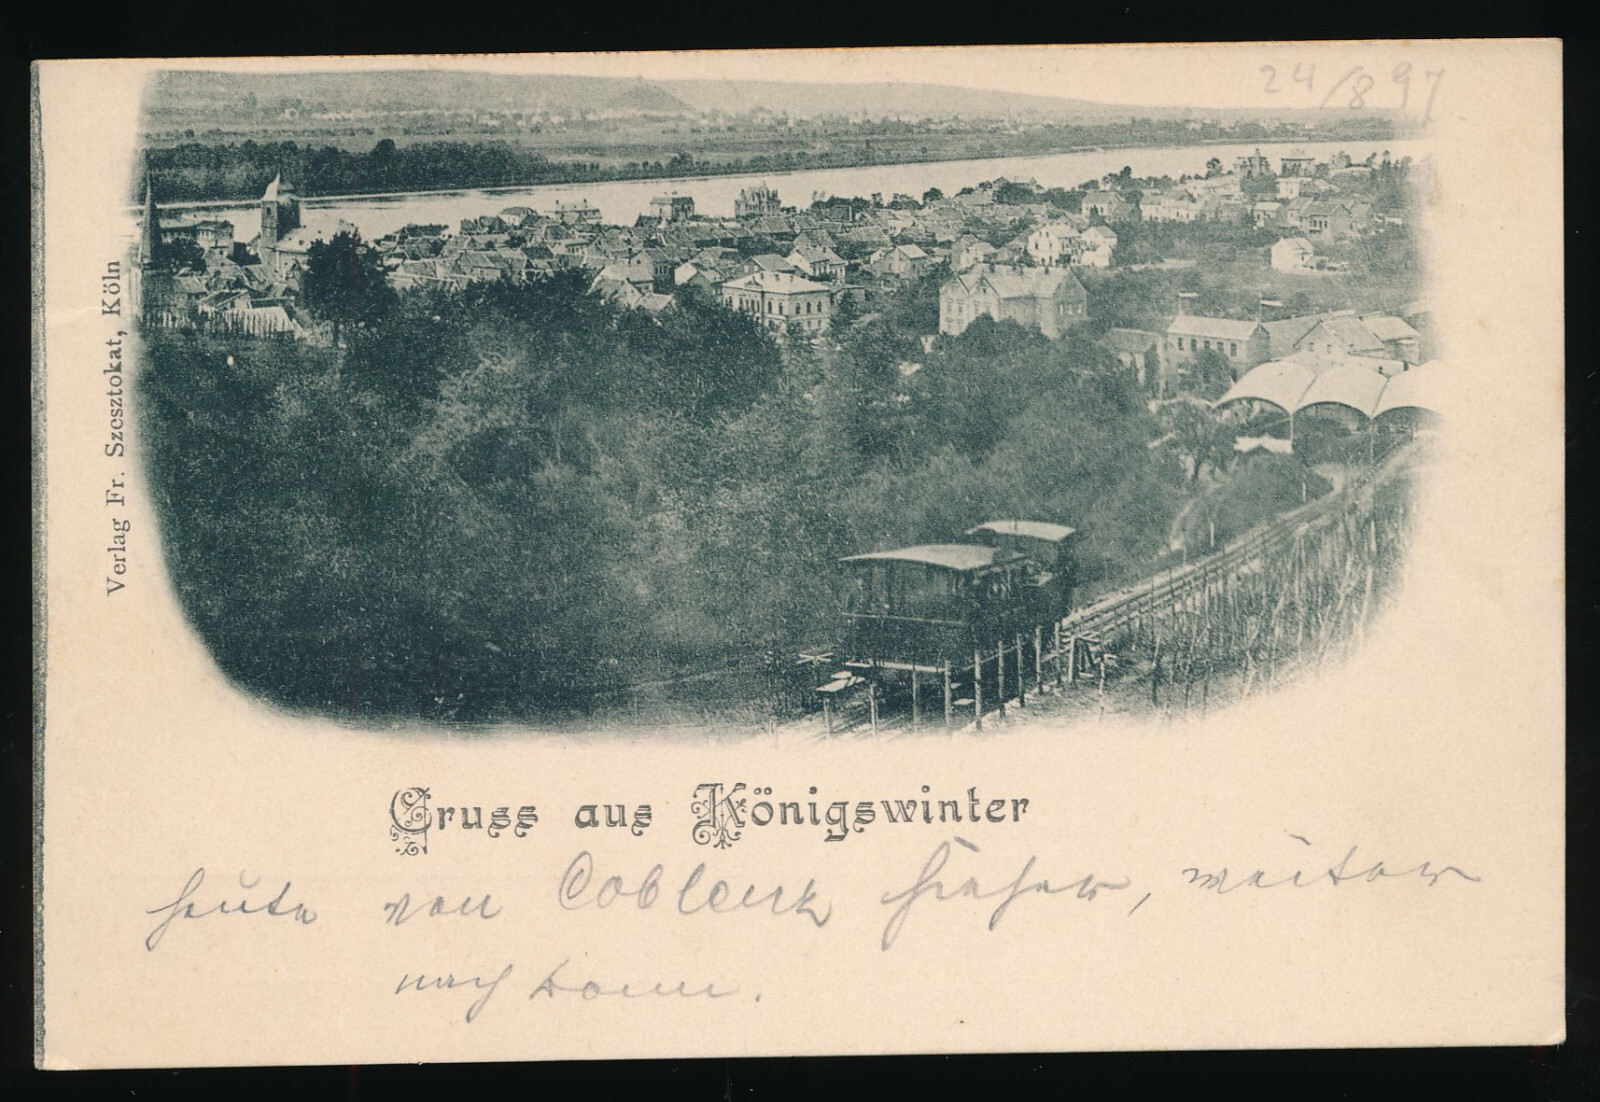 24/8 97
Verlag Fr. Szesztokat, Köln
Gruss aus Königswinter
heute von Coblenz hieher, weiter
nach Bonn.